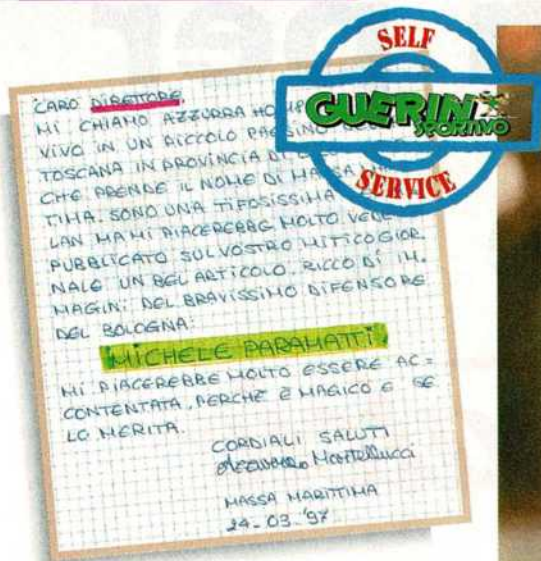 SELF
GUERIN
SPORTIVO
SERVICE
CARO DIRETTORE,
MI CHIAMO AZZURRA HO
VIVO IN UN PICCOLO PAESINO
TOSCANA IN PROVINCIA DI
CHE PRENDE IL NOME DI MASSA
TIMA. SONO UNA TIFOSISSIMA
LAN MA MI PIACEREBBE MOLTO
PUBBLICATO SUL VOSTRO MITICO GIOR
NALE UN BEL ARTICOLO, RICCO DI IM.
MAGINI DEL BRAVISSIMO DIFENSORE
DEL BOLOGNA:
MICHELE PARAMATTI
MI PIACEREBBE MOLTO ESSERE AC=
CONTENTATA, PERCHÈ È MAGICO E SE
LO MERITA.
CORDIALI SALUTI
Azzurra Martellucci
MASSA MARITTIMA
24-03-'97